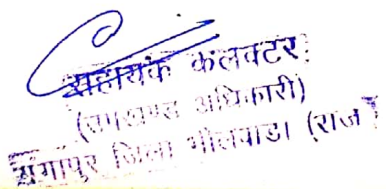 सहायक कलक्टर
(उपखण्ड अधिकारी)
गंगापुर जिला भीलवाडा (राज